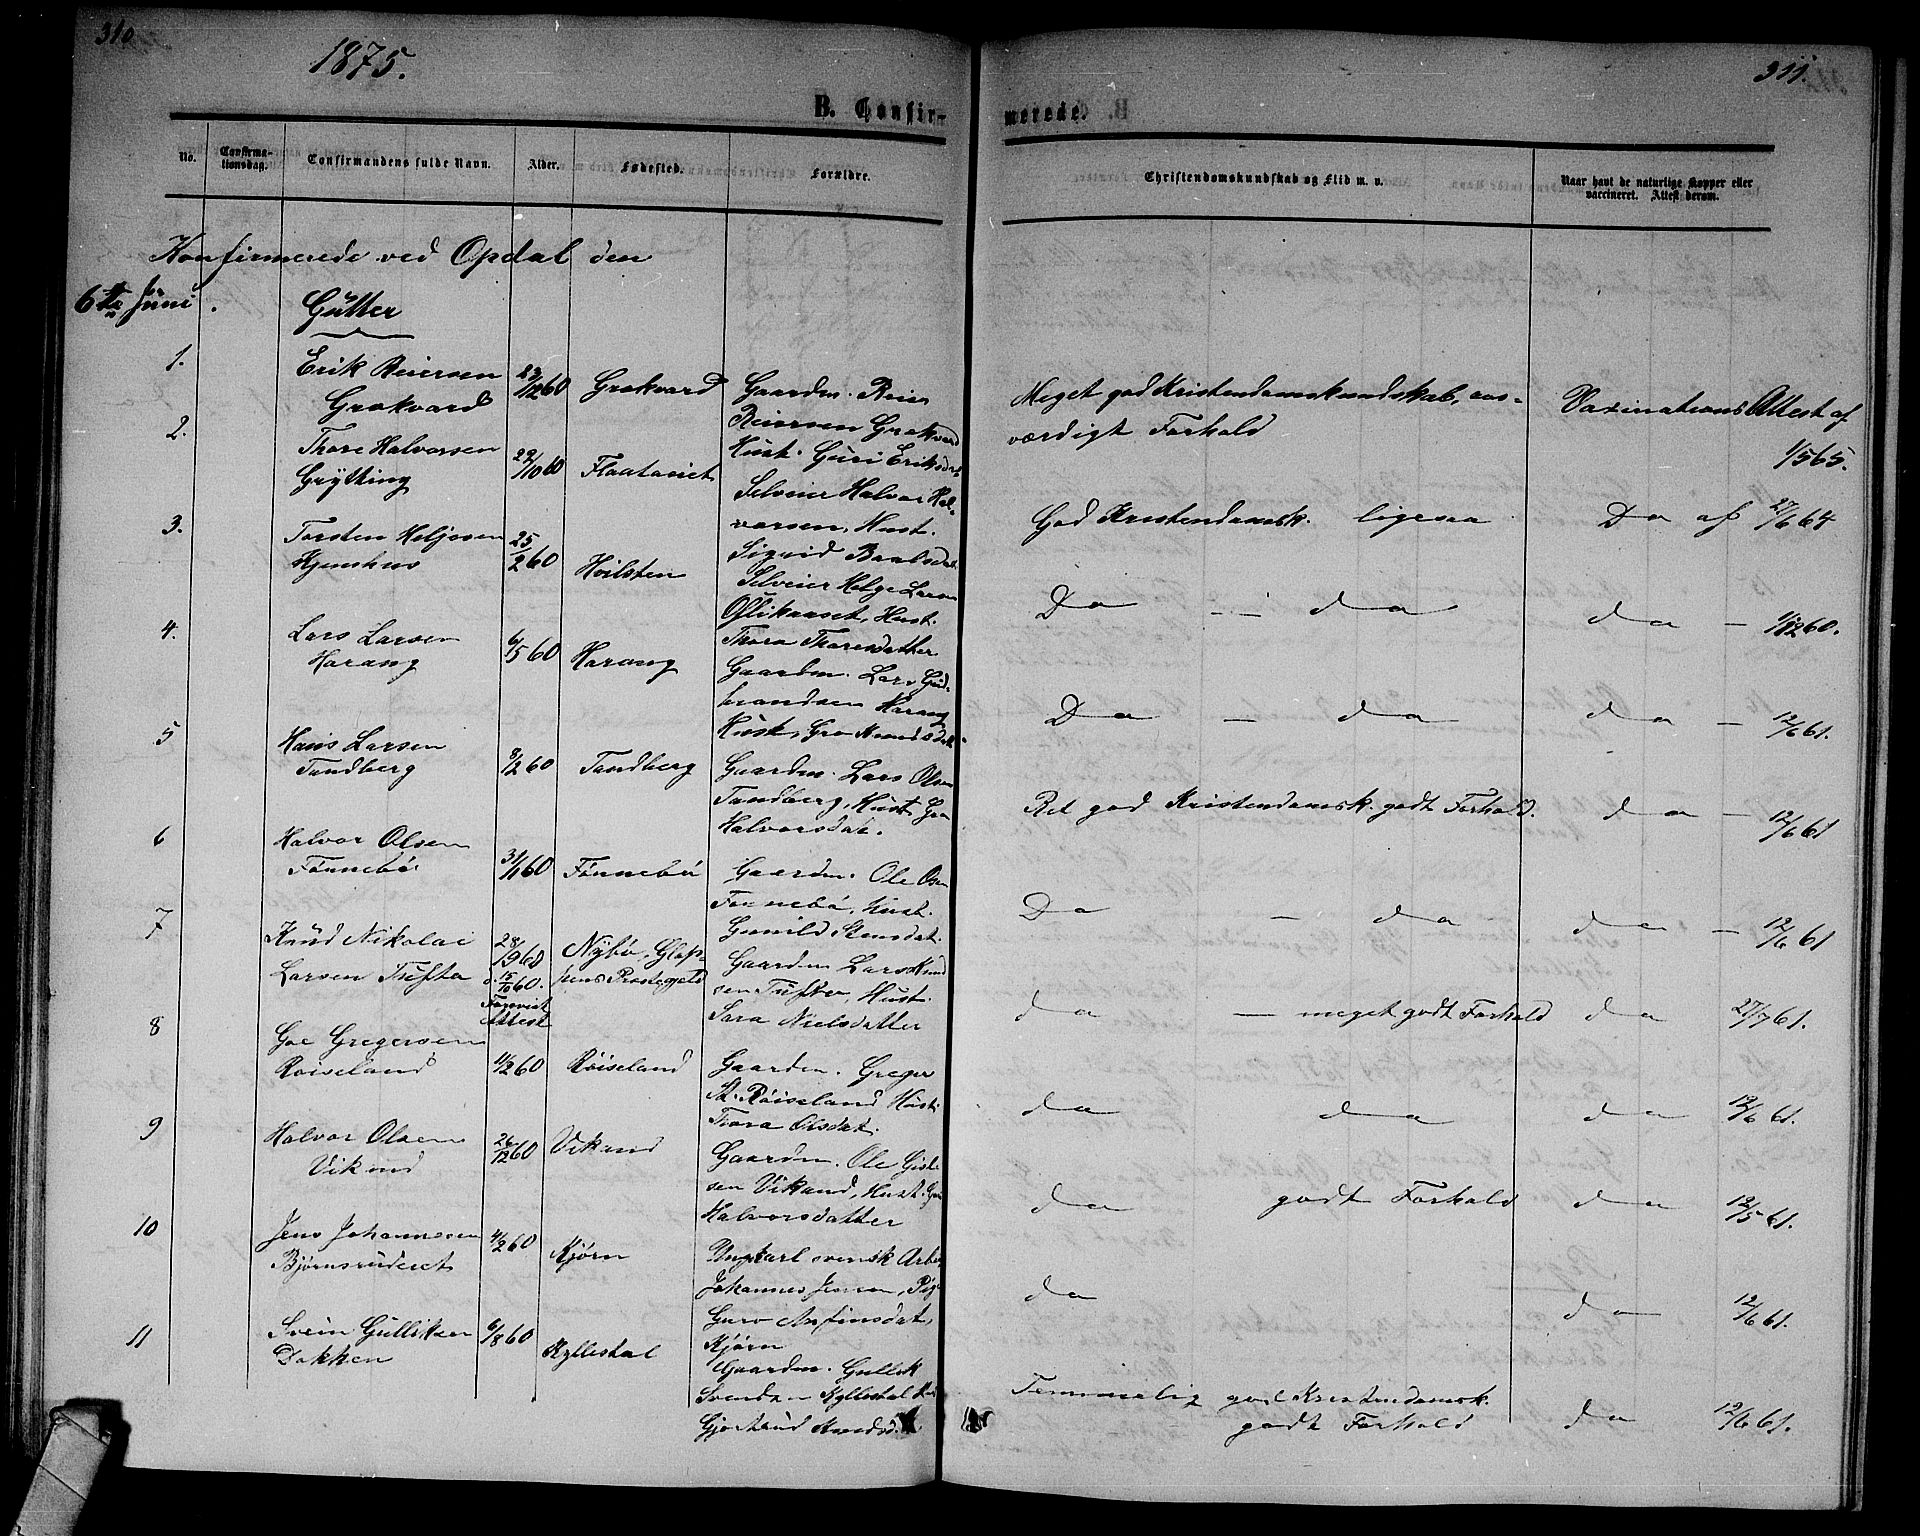 310
1875.
311.
B. Confir-
merede.
No.
Confirma-
tionsdag.
Confirmandens fulde Navn.
Alder.
Fødested.
Forældre.
Christendomskundskab og Flid m. v.
Naar havt de naturlige Kopper eller
vaccineret. Attest derom.
Konfirmerede ved Opdal den
6te Juni.
Gutter
1.
Erik Reiersen
Grøkvard
60
Gaardm. Reier
Reiersen
Hust. Guri Eriksdat
Meget god Kristendomskundskab,
værdigt Forhold
Vaxinations Attest af
1/5 65.
2.
Thore Halvorsen
Grytting
29/10 60
Selveier Halvor Hal-
vorsen, Hust.
Sigrid
God Kristendomsk. ligesaa
Do af 27/6 64
3.
Torsten Heljesen
25/2 60
Hvilsten
Selveier Helge Larsen
Hust.
Thora Thoresdatter
Do - do
do -
4.
Lars Larsen
Harang
6/5 60
Harang
Gaardm. Lars Gud-
brandsen Harang
Hust. Gro
Do - do
do - 12/6 61.
5
Hans Larsen
Tandberg
8/2 60
Tandberg
Gaardm. Lars Olsen
Tandberg, Hust.
Halvorsdat.
Ret god Kristendomsk. godt Forhold.
do - 12/6 61
6
Halvor Olsen
Fønnebø
31/1 60
Fønnebø
Gaardm. Ole
Fønnebø, Hust.
Gunild Stensdat.
Do - do
do - 12/6 61
7
Knud Nikolai
Larsen Tufta
28/9 60
d. 15/10 60.
Attest
Nybø, Glop-
pens Præstegjeld
Gaardm Lars Knud
sen Hust.
Sara Nielsdatter
do - meget godt Forhold
do 27/7 61.
8
Goe Gregersen
Røiseland
11/2 60
Røiseland
Gaardm. Greger
Røiseland Hust.
Thora Olsdat.
do do
do 12/6 61.
9
Halvor Olsen
Vikand
26/12 60
Vikand
Gaardm. Ole
sen Vikand, Hust.
Halvorsdatter
do godt Forhold
do 12/5 61.
10
Jens Johannesen
Bjørnsruderet
4/2 60
Kjørn
Ungkarl svensk Arb
Johannes Jensen, Pig
Guro Anfinsdat,
Kjørn
do
do 12/6 61.
11
Svein Gulliksen
Dokken
6/8 60
Kyllestal
Gaardm. Gullik
Svendsen Kyllestal
Gjertrud
Temmelig god Kristendomsk.
godt Forhold
do 12/6 61.